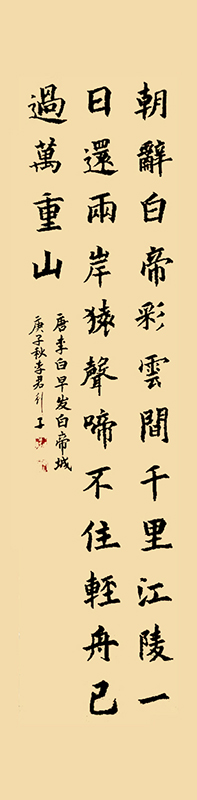 朝辭白帝彩雲間千里江陵一
日還兩岸猿聲啼不住輕舟已
過萬重山
唐李白早发白帝城
庚子秋李君行子